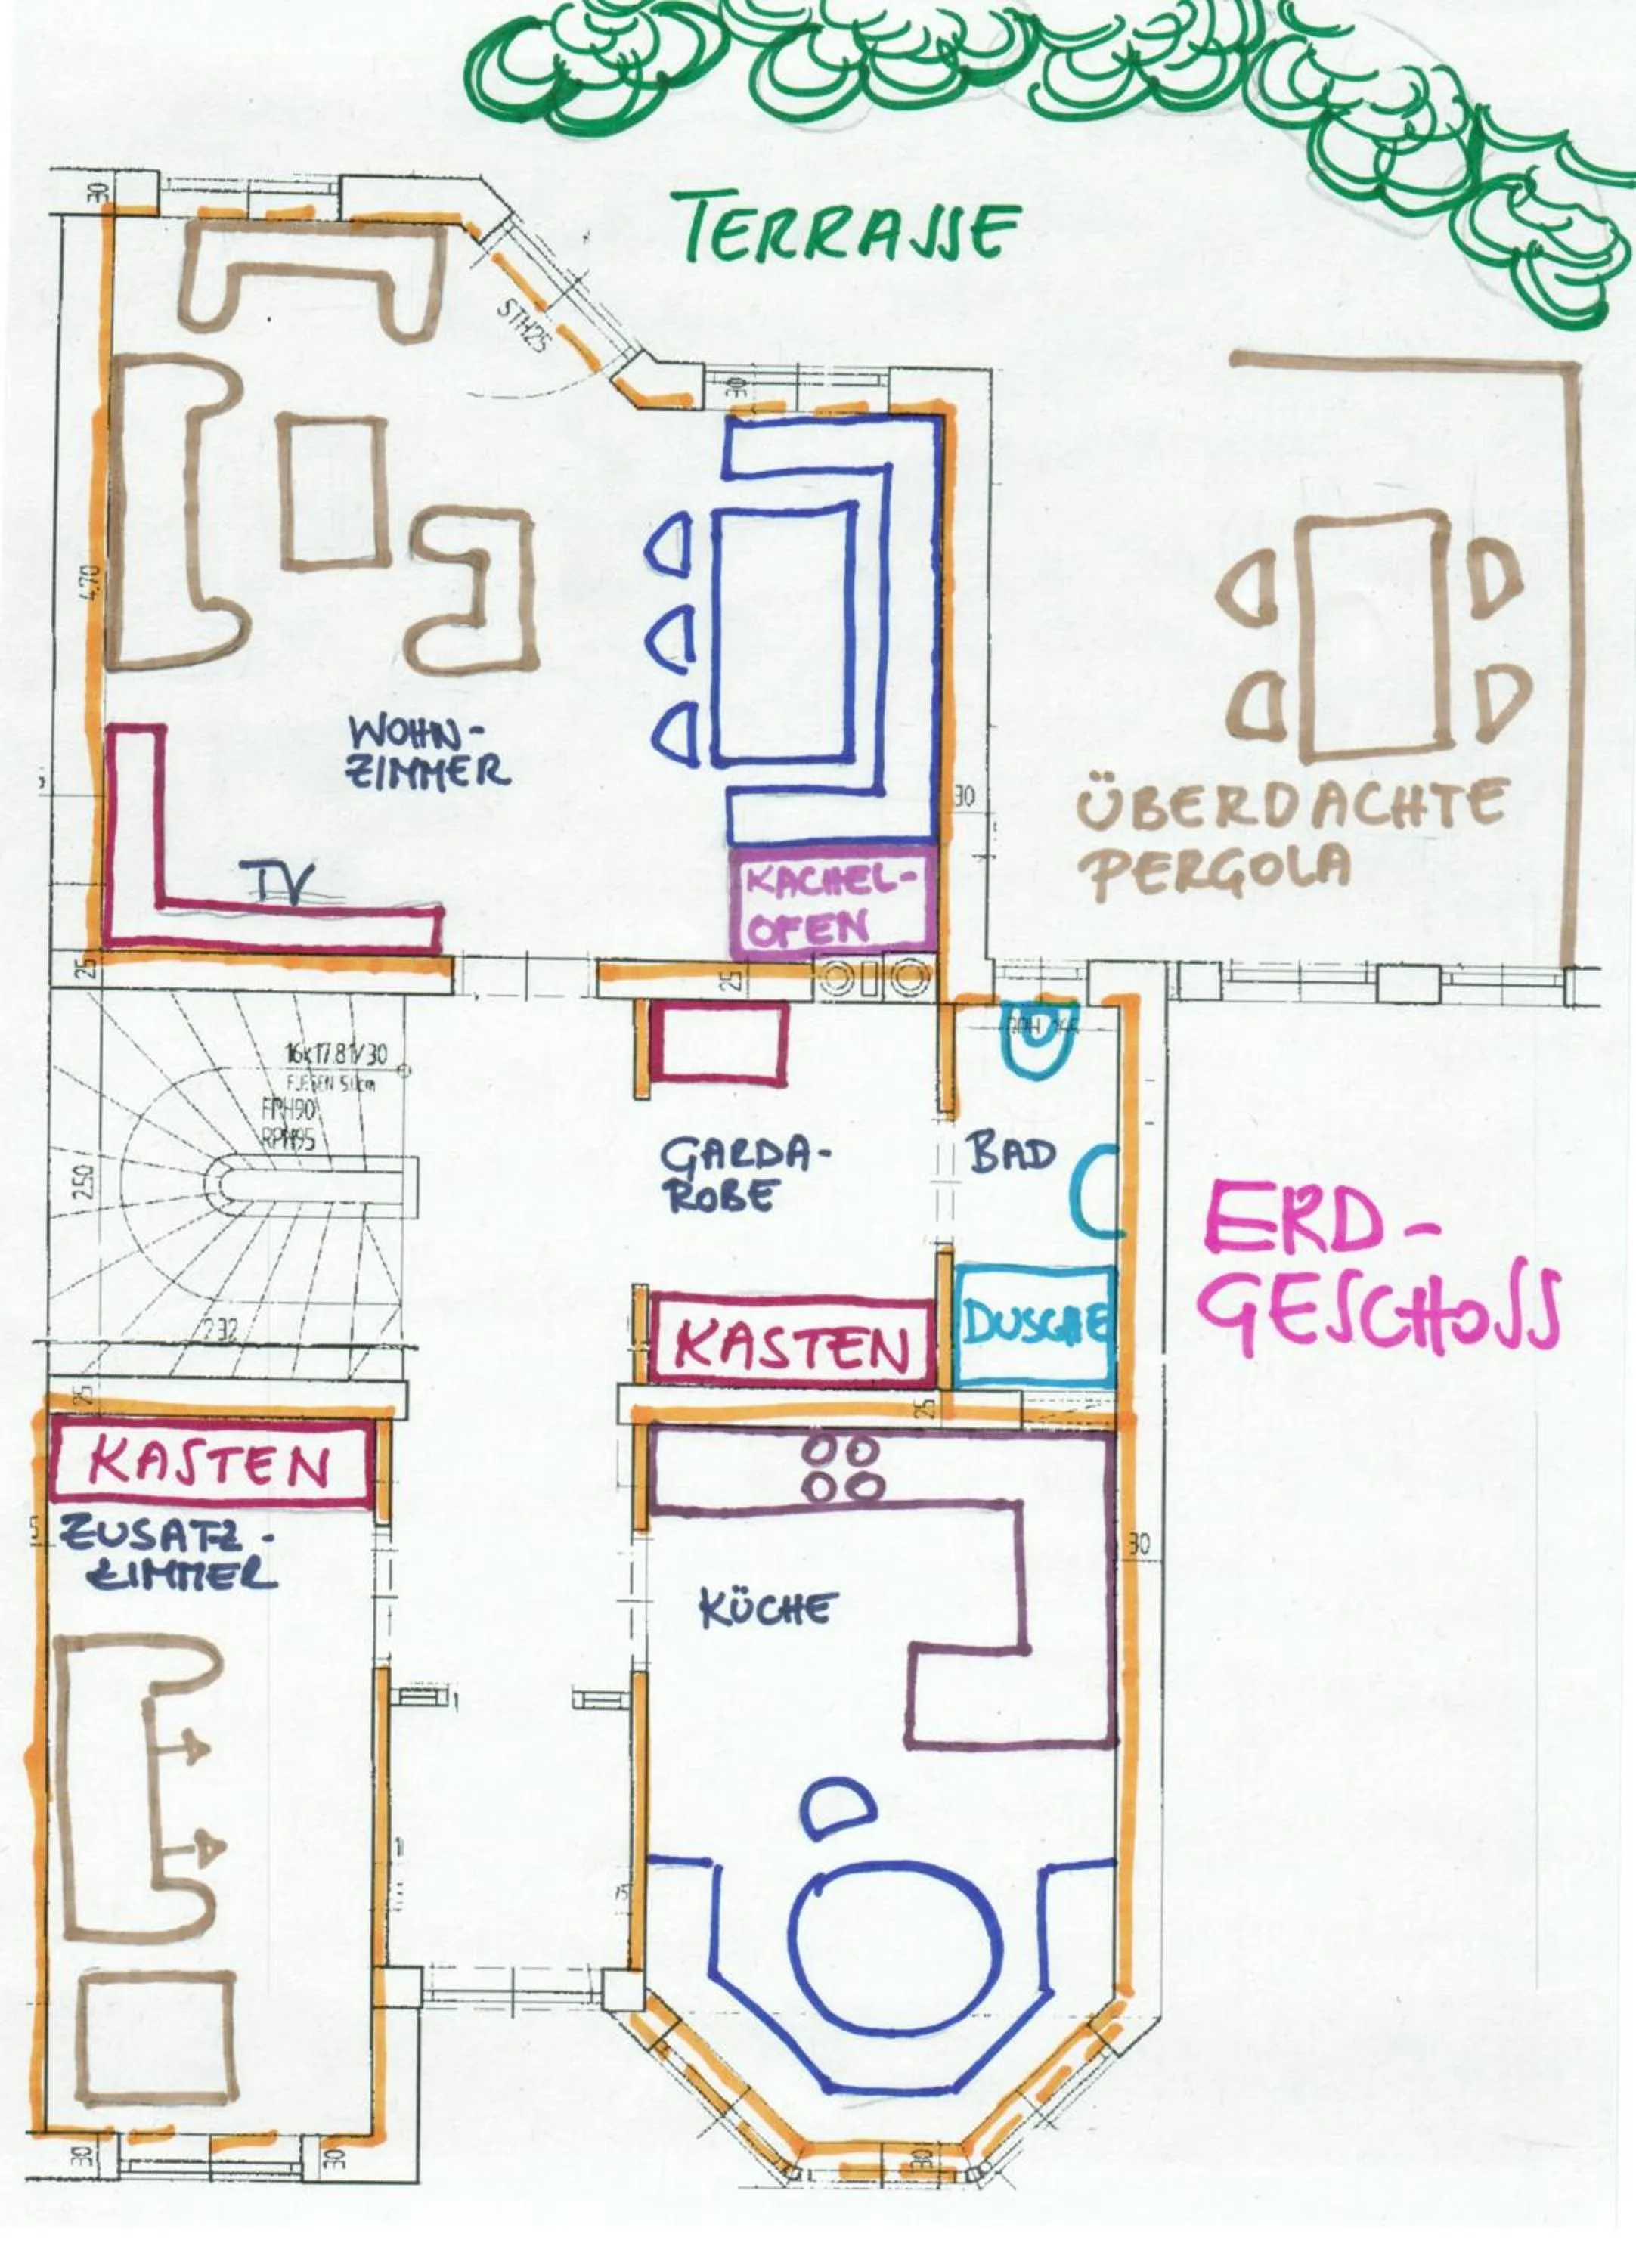 TERRASSE
30
STH25
30
4.70
WOHN-
ZIMMER
TV
KACHEL-
OFEN
30
ÜBERDACHTE
PERGOLA
25
25
16x17.81/30
FLIESEN 5.0cm
FPH90
RPH95
2.50
2.32
GARDA-
ROBE
BAD
ERD-
GESCHOSS
KASTEN
DUSCHE
25
25
KASTEN
ZUSATZ-
ZIMMER
KÜCHE
30
15
30
30
30